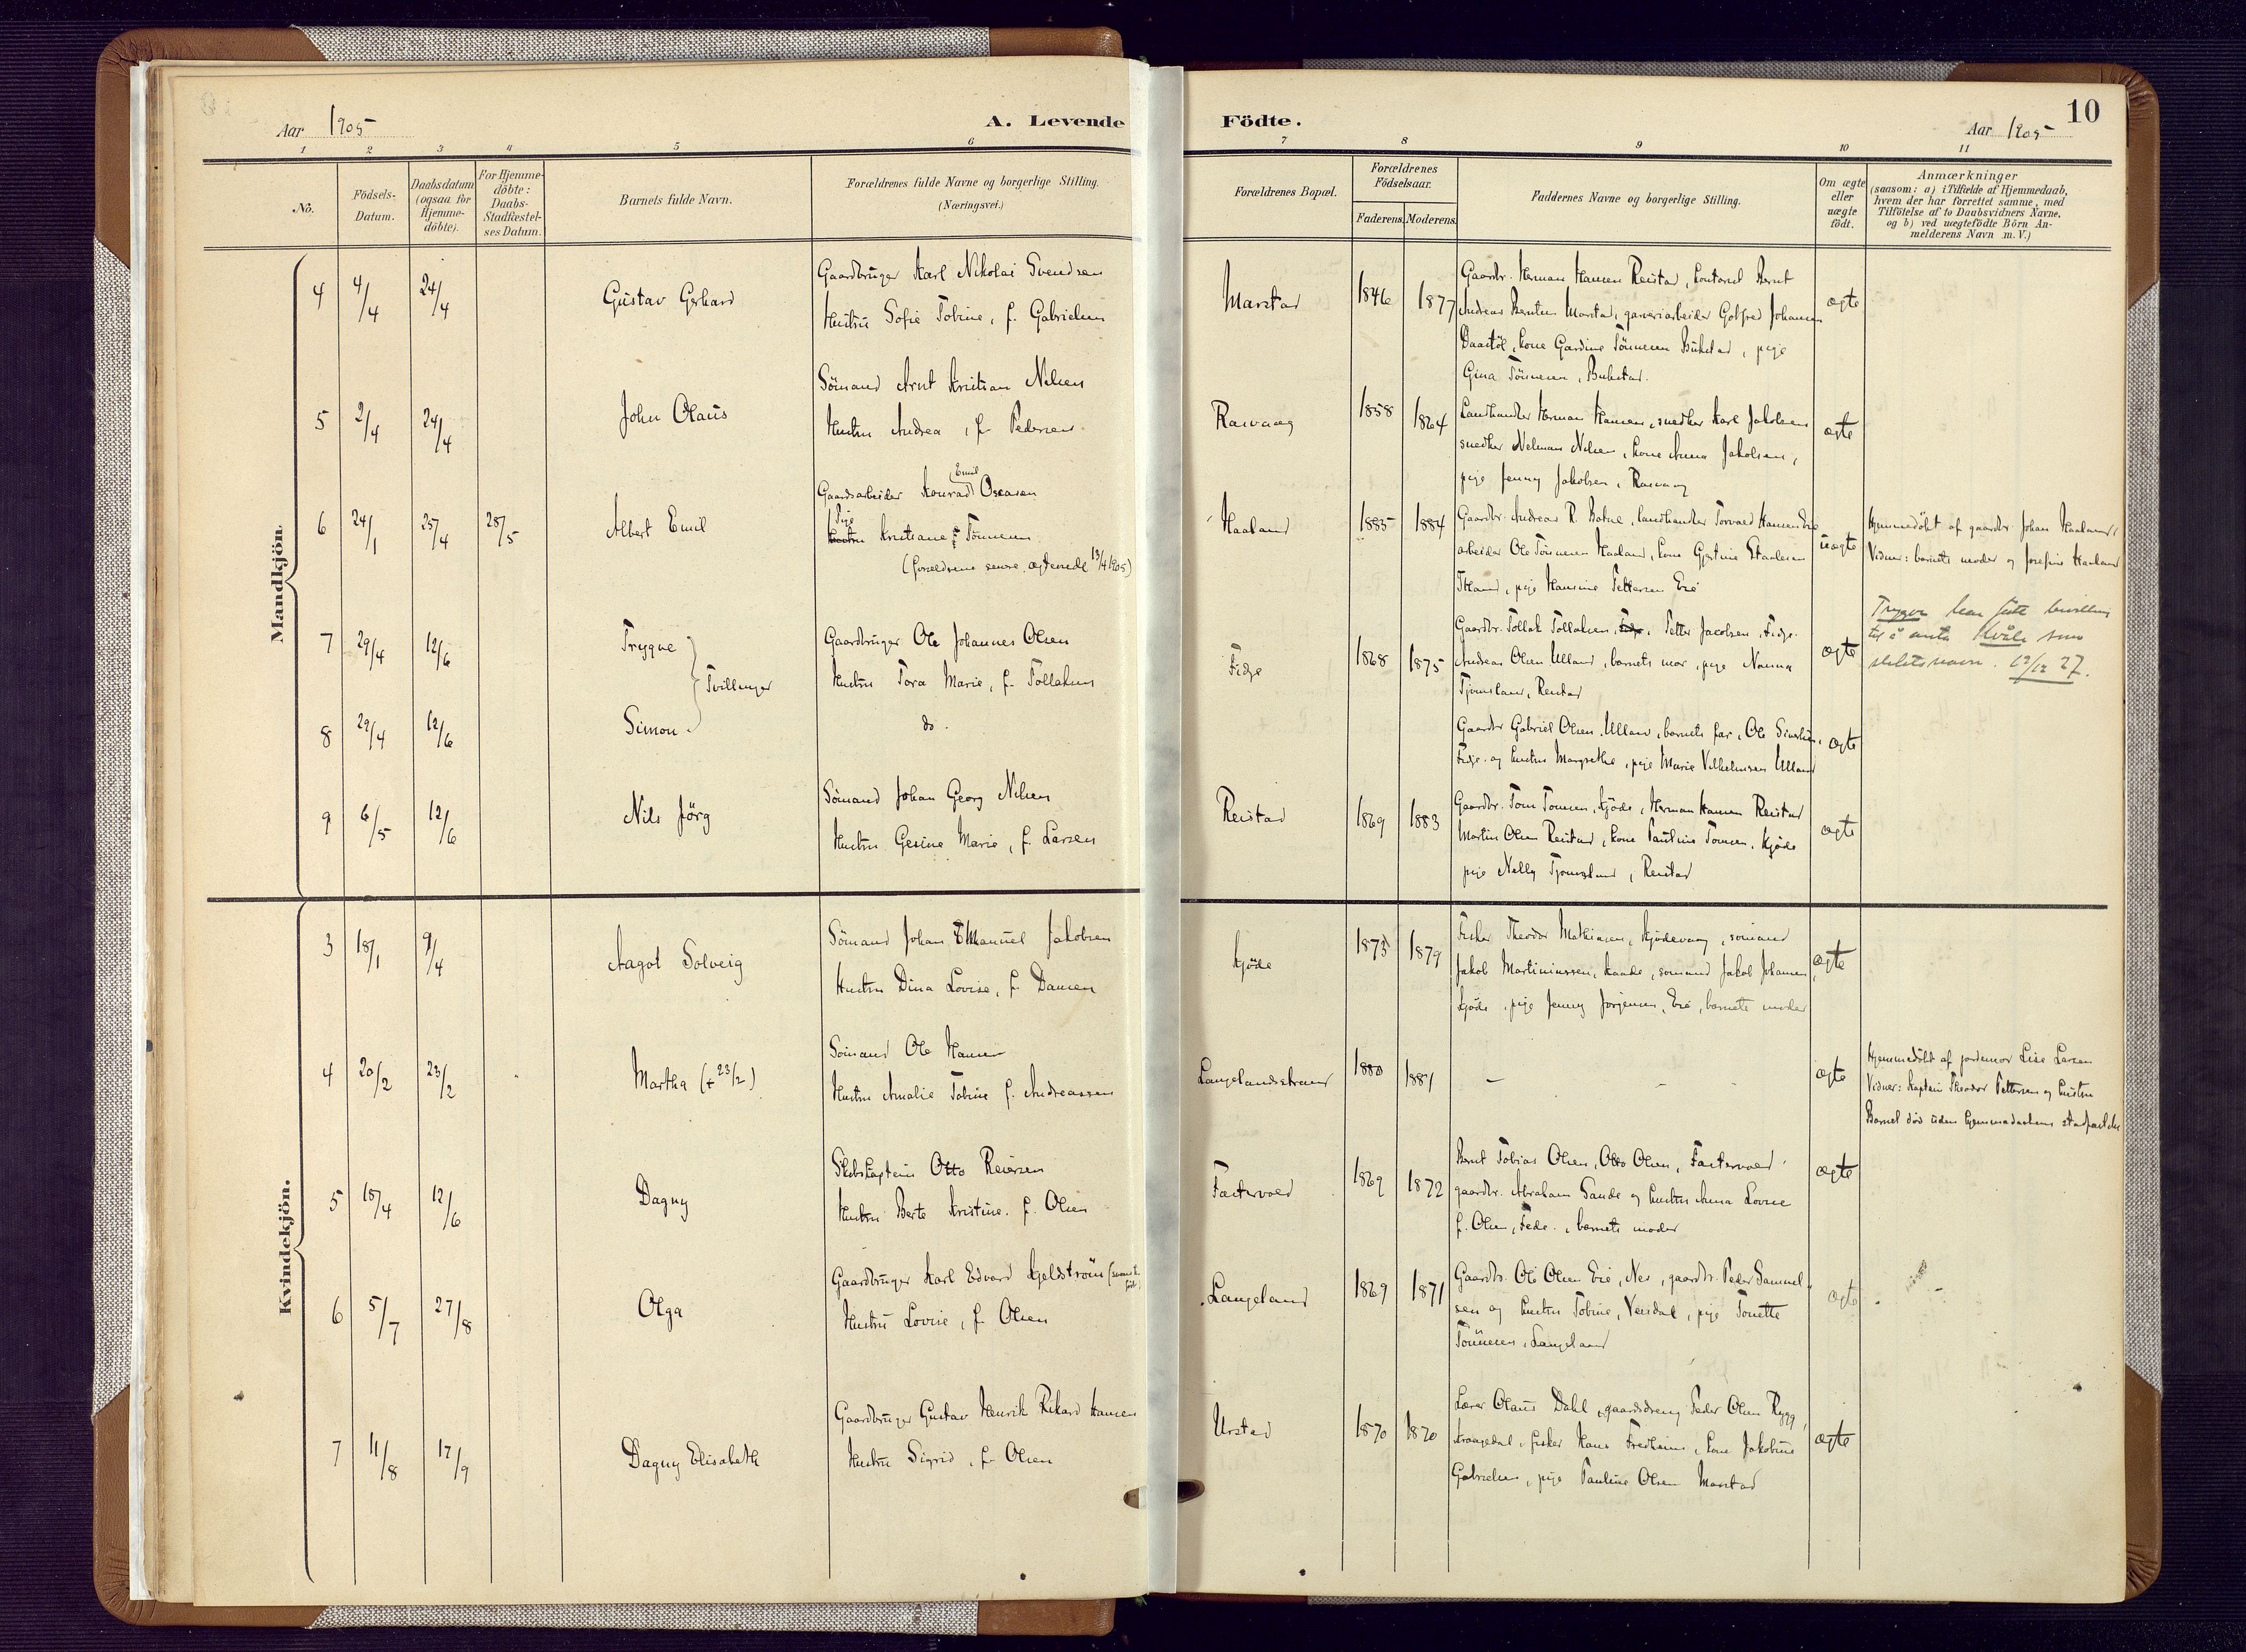 Aar 1905
A. Levende
Födte.
Aar 1905
10
1 2 3 4 5 6 7 8 9 10 11
No.
Födsels-Datum.
Daabsdatum (ogsaa for Hjemme-döbte).
For Hjemme-döbte: Daabs-Stadfæstel-ses Datum.
Barnets fulde Navn.
Forældrenes fulde Navne og borgerlige Stilling.
(Næringsvei.)
Forældrenes Bopæl.
Forældrenes Födselsaar.
Faderens. Moderens.
Faddernes Navne og borgerlige Stilling.
Om ægte eller uægte födt.
Anmærkninger
(saasom: a) i Tilfælde af Hjemmedaab,
hvem der har forrettet samme, med
Tilföielse af to Daabsvidners Navne.
og b) ved uægtefödte Börn An-
melderens Navn m.V.)
Mandkjön.
4 4/4 24/4 Gustav Gerhard
Gaardbruger Karl Nikolai Svendsen
Hustru Sofie Tobine, f. Gabrielsen
Marstad 1846 1877
Gaardbr. Herman Hansen Reistad, Bernt
Andreas Berntsen Marstad, garveriarbeider Gotfred Johansen
kone Gardine Tönnesen Bukstad, pige
Gina Tönnesen, Bukstad.
ægte
5 2/4 24/4 John Olaus
Sömand Arnt Kristian Nilsen
Hustru Andrea, f. Pedersen
Rasvaag 1858 1864
Landhandler Herman Hansen, snedker Karl Jakobsen
snedker Nilsen, kone Anna Jakobsen,
pige Jenny Jakobsen, Rasvaag
ægte
6 24/1 25/4 28/5 Albert Emil
Gaardsarbeider Konrad Emil Oseasen
Pige Hustru Kristiane Tönnesen
(forældrene senere ægteviede 13/4 1905)
Haaland 1885 1884
Gaardbr. Andreas R. landhandler Torvald Hansen
arbeider Ole Tönnesen Haaland, kone
pige Hansine Pettersen Eie
uægte
Hjemmedöbt af gaardbr. Johan Haaland,
Vidner: barnets moder og Josefine Haaland
7 29/4 12/6 Trygve
Tvillinger
Gaardbruger Ole Johannes Olsen
Hustru Tora Marie, f. Tollaksen
Fidje 1868 1875
Gaardbr. Tollak Tollaksen, Petter Jacobsen, Fidje.
Andreas Olsen Ulland, barnets mor, pige Nanna
Tjomsland, Reistad
ægte
Trygve har fått bevilling
til å anta Kvåle som
slektsnavn. 12/12 27.
8 29/4 12/6 Simon
do.
Gaardbr Gabriel Olsen Ulland, barnets far, Ole
Fidje og hustru Margrethe, pige Marie Vilhelmsen Ulland
ægte
9 6/5 12/6 Nils Jörg
Sömand Johan Georg Nilsen
Hustru Gesine Marie, f. Larsen
Reistad 1869 1883
Gaardbr. Tom Tomsen, Kjöde, Herman Hansen Reistad
Martin Olsen Reistad, kone Pauline Tomsen, Kjöde
pige Nelly Tjomsland, Reistad
ægte
Kvindekjön.
3 18/1 9/4 Aagot Solveig
Sömand Johan Emanuel Jakobsen
Hustru Dina Lovise, f. Dansen
Kjöde 1873 1879
Fisker Theodor Mathiasen, Kjödevaag, sömand
Jakob Martiniussen, Kaade, sömand Jakob Johansen
Kjöde, pige Jenny Jörgensen, Eie, barnets moder
ægte
4 20/2 23/2 Martha (+ 23/2)
Sömand Ole Hansen
Hustru Amalie Tobine f. Andreassen
Langelandsstrand 1880 1881
–
ægte
Hjemmedöbt af jordemor Lise Larsen
Vidner: Kaptein Theodor Pettersen og hustru
Barnet död uden hjemmedaabens stadfæstelse
5 18/4 12/6 Dagny
Skibskaptein Otto Reiersen
Hustru Berte Kristine f. Olsen
Fastervold 1869 1872
Bernt Tobias Olsen, Otto Olsen, Fastervold
gaardbr. Abraham Sande og hustru Anna Lovise
f. Olsen, Fede, barnets moder
ægte
6 5/7 27/8 Olga
Gaardbruger Karl Edvard Kjeldström (svensk
födt)
Hustru Lovise, f. Olsen
Langeland 1869 1871
Gaardbr. Ole Olsen Eie, Nes, gaardbr. Peder Samuel-
sen og hustru Tobine, pige Tonette
Tönnesen, Langeland
ægte
7 11/8 17/9 Dagny Elisabeth
Gaardbruger Gustav Henrik Rikard Hansen
Hustru Sigrid, f. Olsen
Urstad 1870 1870
Lærer Olaus Dahl, gaardsdreng Peder Olsen Rygg,
fisker Hans Fredheim, kone Jakobine
Gabrielsen, pige Pauline Olsen Marstad
ægte